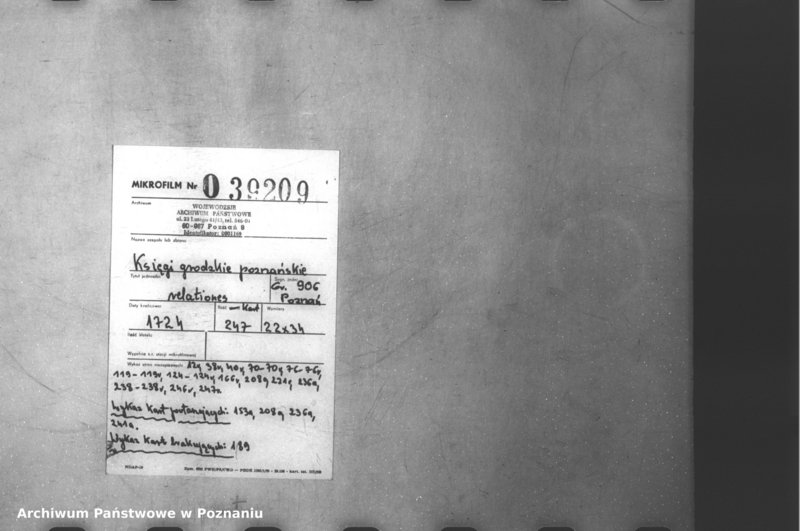 MIKROFILM Nr 0 39209
Archiwum
WOJEWÓDZKIE
ARCHIWUM PAŃSTWOWE
ul. 23 Lutego 41/43, tel.
60-967 Poznań 9
Identyfikator:
Nazwa zespołu lub zbioru
Księgi grodzkie poznańskie
Tytuł jednostki
Gr. 906
relationes Poznań
Daty krańcowe Ilość kart Wymiary
1724 247 22x34
Ilość klatek
Wypełnia szt. stacji mikrofilmowej
Wykaz stron niezapisanych: 12v, 38v, 40v, 70-70v, 76-76v,
119-119v, 124-124v, 166v, 208a, 221v, 236a,
238-238v, 246v, 247v.
Wykaz kart powtarzających: 153a, 208a, 236a,
241a.
Wykaz kart brakujących: 189
Archiwum Państwowe w Poznaniu